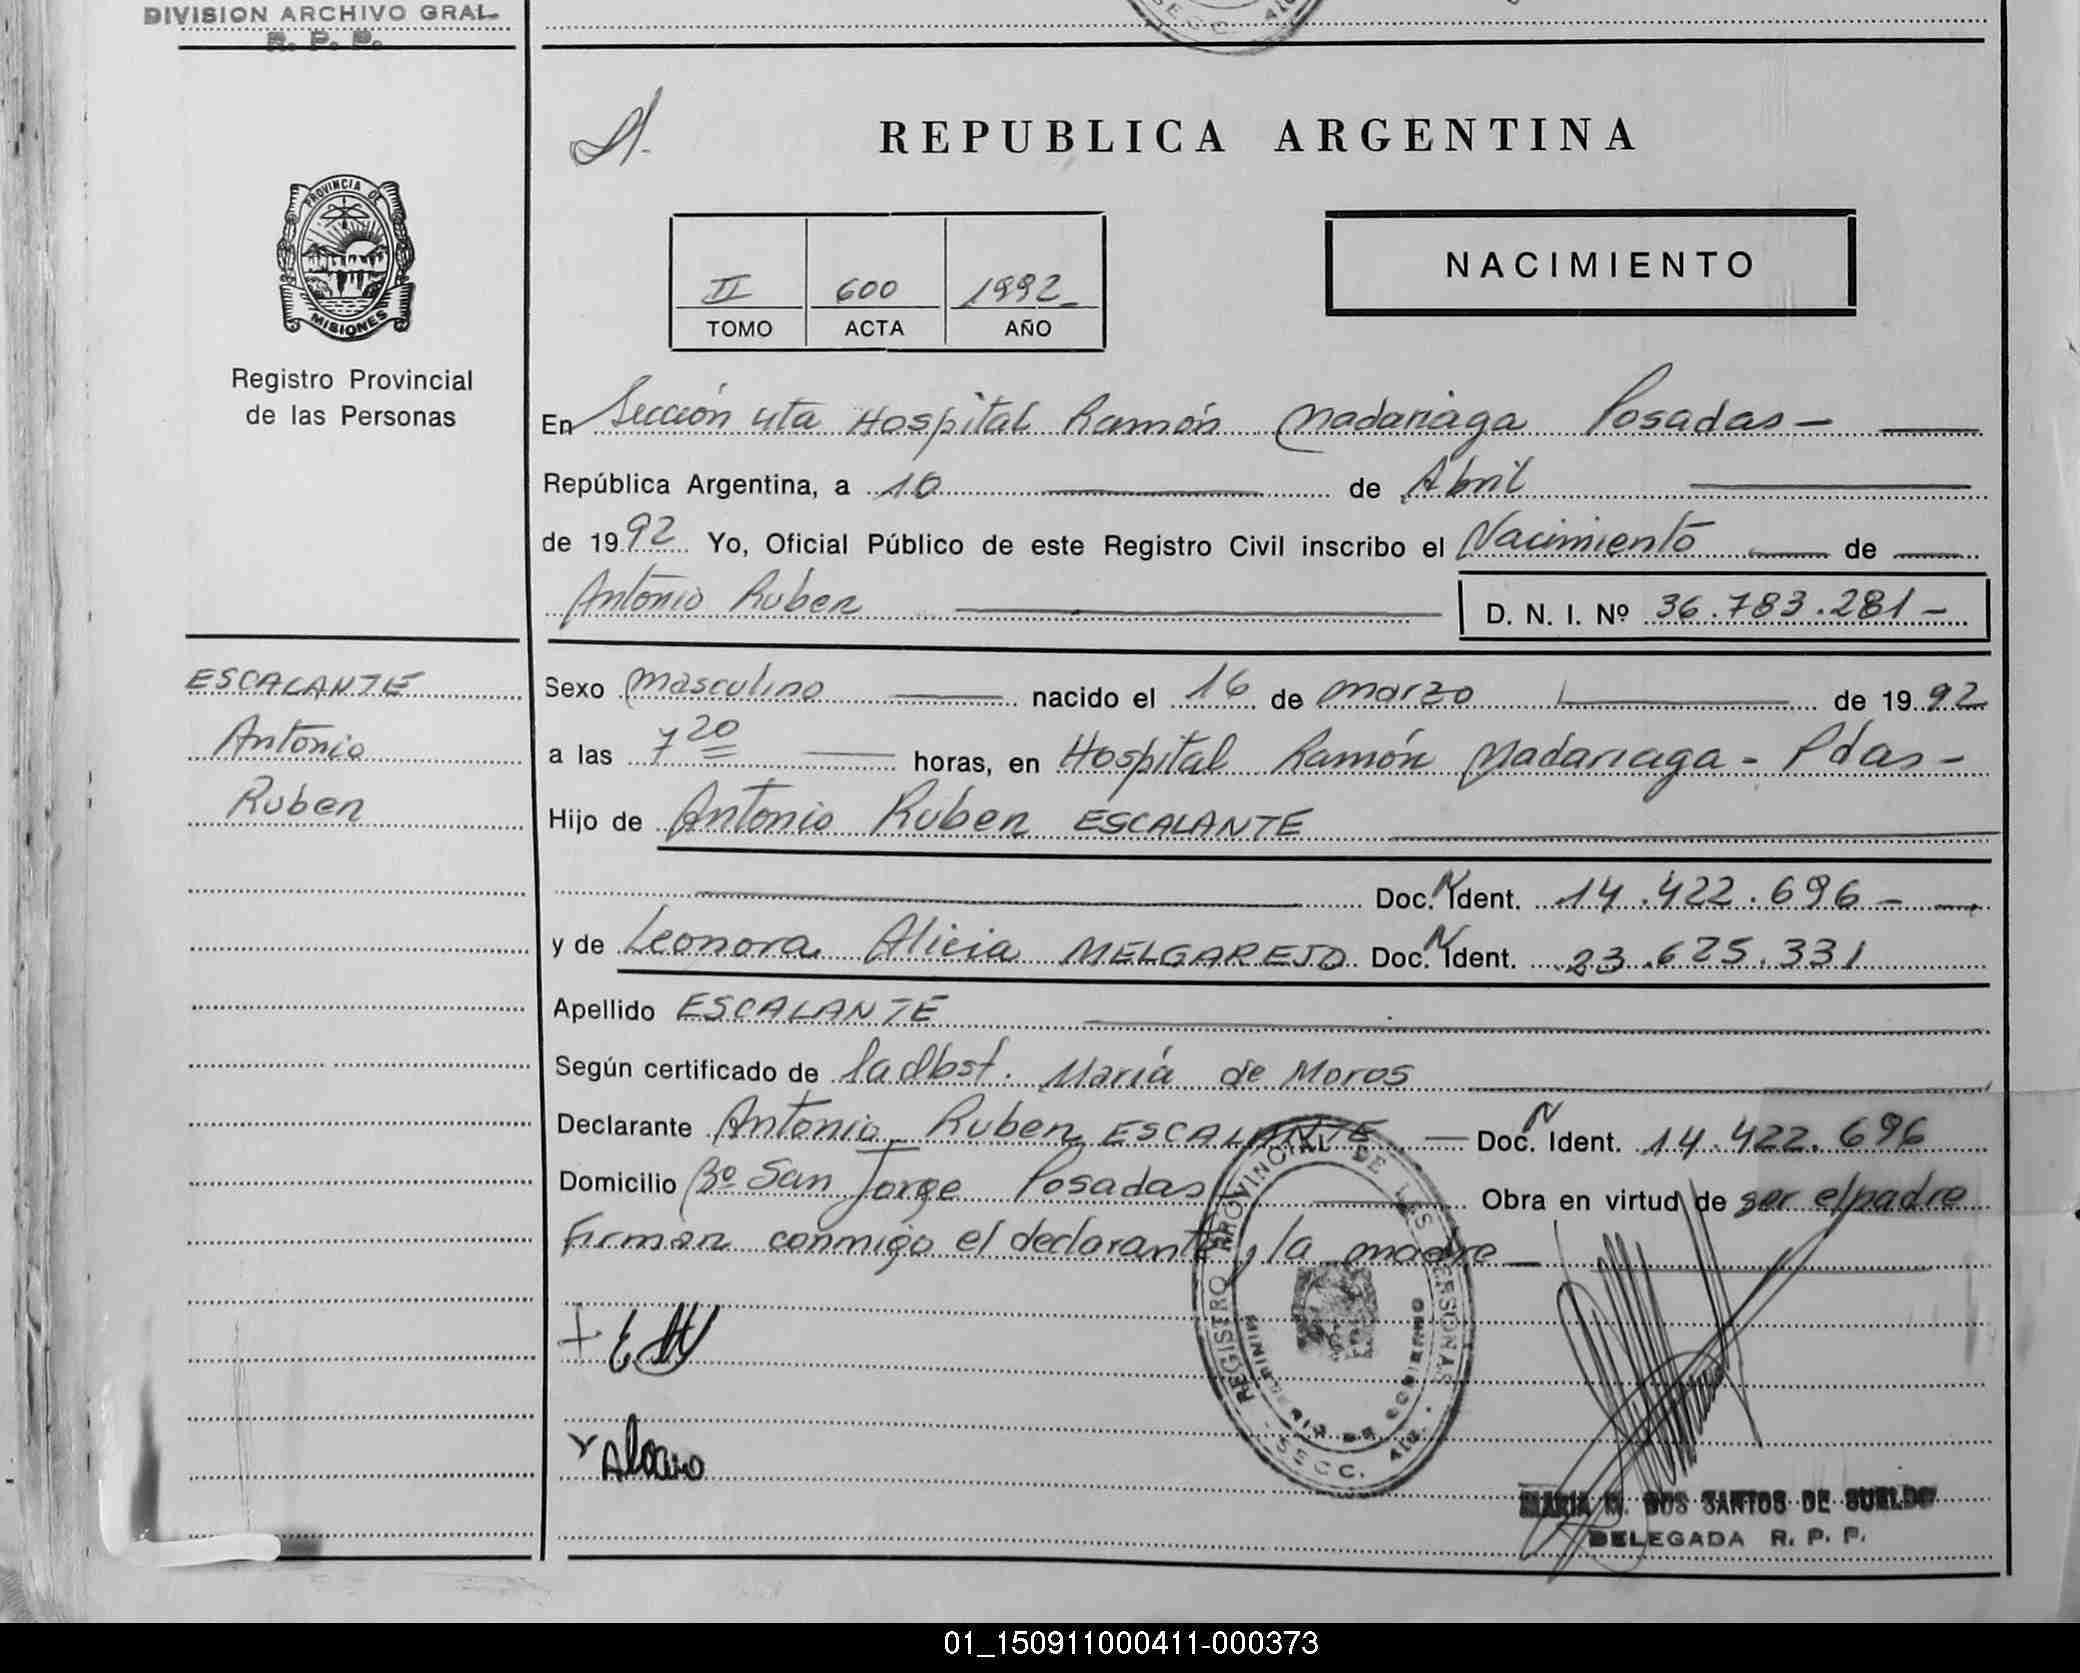 DIVISION ARCHIVO GRAL.
R. P. P.
REPUBLICA ARGENTINA
PROVINCIA DE
MISIONES
Registro Provincial
de las Personas
II 600 1992
TOMO ACTA AÑO
NACIMIENTO
En Sección 4ta Hospital Ramón Madariaga Posadas —
República Argentina, a 10 de Abril
de 1992 Yo, Oficial Público de este Registro Civil inscribo el Nacimiento de
Antonio Ruben D. N. I. Nº 36.783.281 -
ESCALANTE
Antonio
Ruben
Sexo Masculino nacido el 16 de Marzo de 1992
a las 7 20 horas, en Hospital Ramón Madariaga - Pdas -
Hijo de Antonio Ruben ESCALANTE
Doc. N Ident. 14.422.696 -
y de Leonora Alicia MELGAREJO Doc. N Ident. 23.625.331
Apellido ESCALANTE
Según certificado de la Obst. María de Moros
Declarante Antonio Ruben ESCALANTE — Doc. N Ident. 14.422.696
Domicilio Bº San Jorge Posadas Obra en virtud de ser el padre
Firman conmigo el declarante y la madre
REGISTRO PROVINCIAL DE LAS PERSONAS
MINISTERIO DE GOBIERNO
SECC. 4ta.
MARIA N. DOS SANTOS DE SUELDO
DELEGADA R. P. P.
01_150911000411-000373